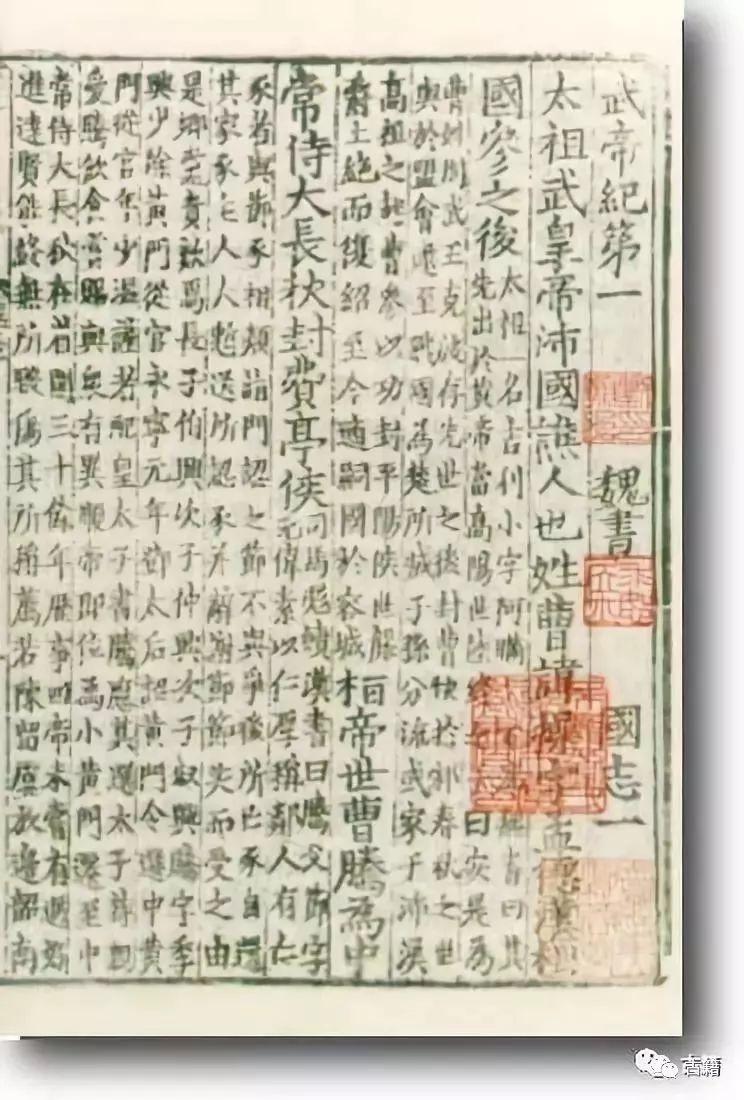 武帝紀第一 魏書 國志一
太祖武皇帝沛國譙人也姓曹諱操字孟德漢相
國參之後
太祖一名吉利小字阿瞞 書曰其
先出於黃帝當高陽世陸終 曰安是為
曹姓周武王克殷存先世之後封曹俠於邾春秋之世
與於盟會逮至戰國為楚所滅子孫分流或家于沛漢
高祖之起曹參以功封平陽侯世襲
爵土絕而復紹至今適嗣國於容城
桓帝世曹騰為中
常侍大長秋封費亭侯
司馬彪續漢書曰騰父節字
元偉素以仁厚稱鄰人有亡
豕者與節豕相類詣門認之節不與爭後所亡豕自還
其家豕主人大慙送所認豕并辭謝節節笑而受之由
是鄉黨貴歎焉長子伯興次子仲興次子叔興騰字季
興少除黃門從官永寧元年鄧太后詔黃門令選中黃
門從官年少溫謹者配皇太子書騰應其選太子特親
愛騰飲食賞賜與眾有異順帝即位為小黃門遷至中
常侍大長秋在省闥三十餘年歷事四帝未嘗有過好
進達賢能終無所毀傷其所稱薦若陳留虞放邊韶南
古籍